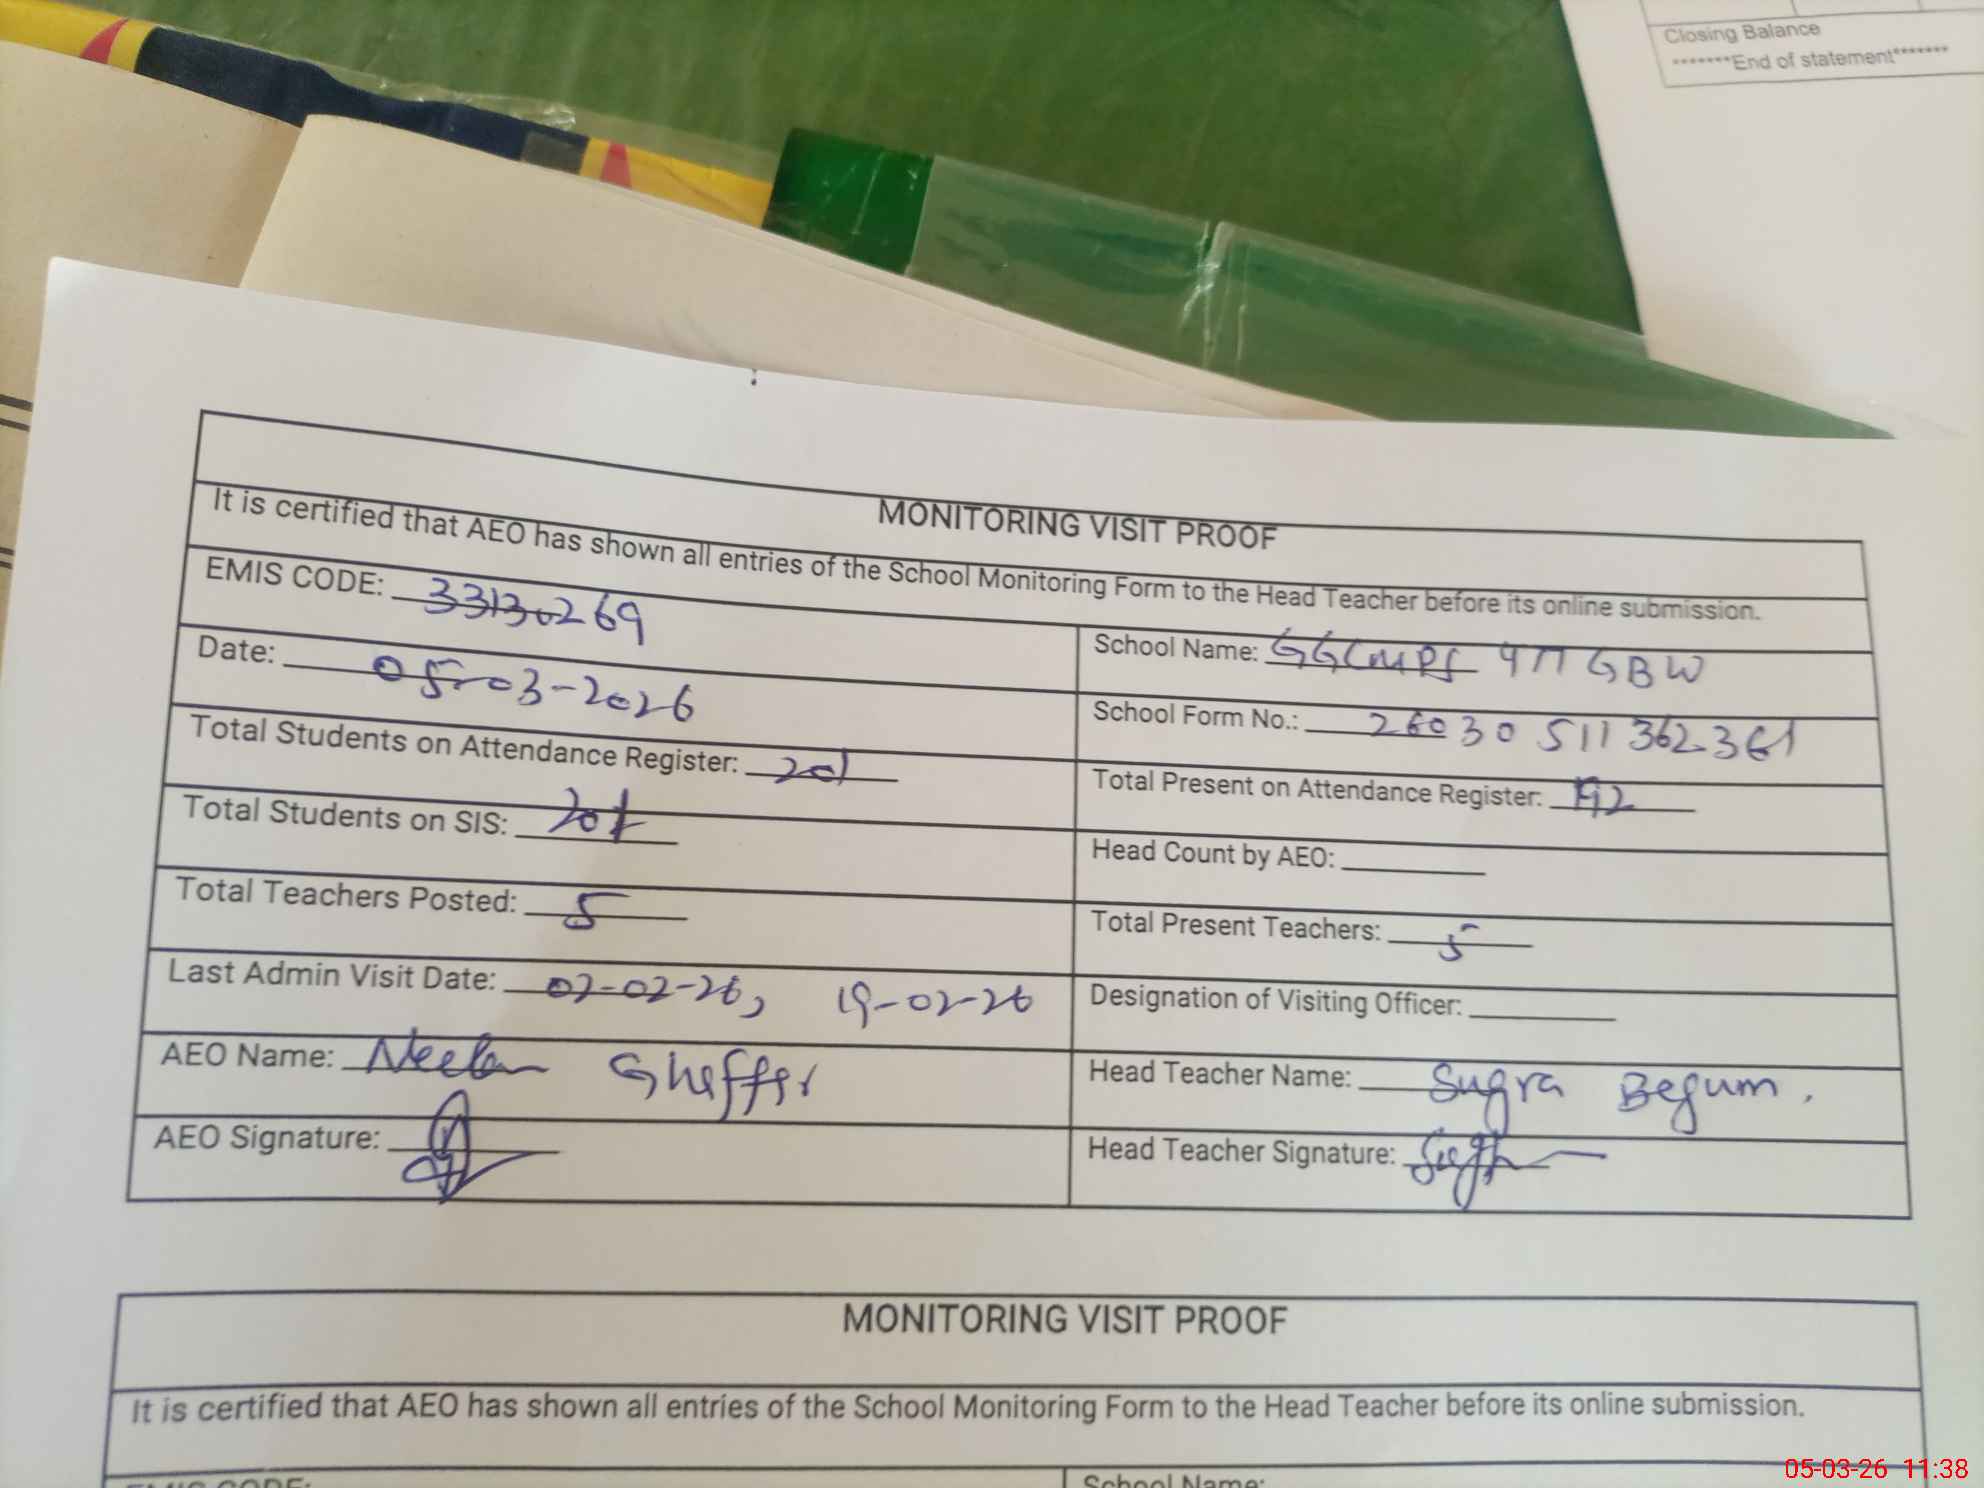 Closing Balance
*******End of statement*******
MONITORING VISIT PROOF
It is certified that AEO has shown all entries of the School Monitoring Form to the Head Teacher before its online submission.
EMIS CODE: 33130269
School Name: GGCMPS 477 GBW
Date: 05-03-2026
School Form No.: 26030511362361
Total Students on Attendance Register: 201
Total Present on Attendance Register: 192
Total Students on SIS: 201
Head Count by AEO:
Total Teachers Posted: 5
Total Present Teachers: 5
Last Admin Visit Date: 02-02-26, 19-02-26
Designation of Visiting Officer:
AEO Name: Neelam Ghaffar
Head Teacher Name: Sugra Begum.
AEO Signature:
Head Teacher Signature:
MONITORING VISIT PROOF
It is certified that AEO has shown all entries of the School Monitoring Form to the Head Teacher before its online submission.
EMIS CODE:
School Name:
05-03-26 11:38